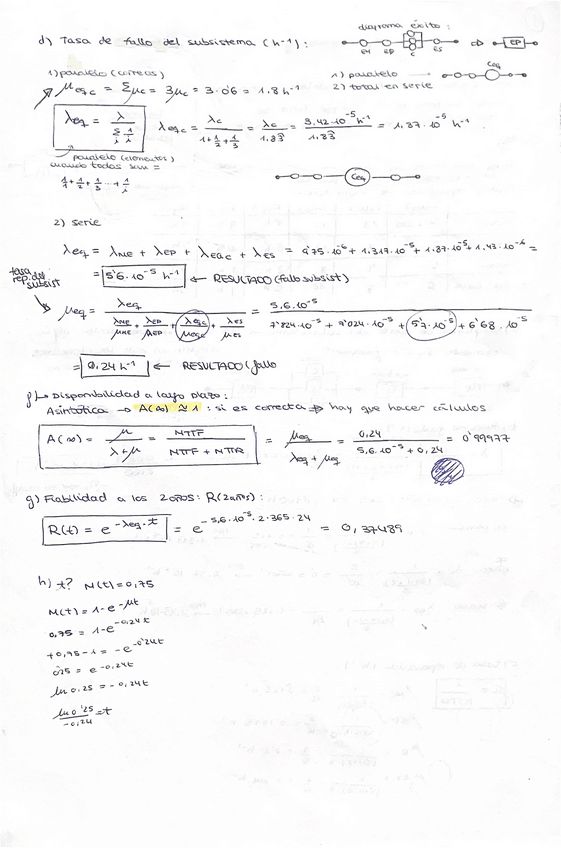 diagrama éxito:
d) Tasa de fallo del subsistema (h⁻¹):
EP
C
ES
1) paralelo (correas)
1) paralelo
Ceq
μeqc = Σμc = 3μc = 3·0'6 = 1.8 h⁻¹
2) total en serie
λeq = λ / Σ 1/i
λeqc = λc / (1 + 1/2 + 1/3) = λc / 1.83 = 3.42·10⁻⁵ h⁻¹ / 1.83 = 1.87·10⁻⁵ h⁻¹
paralelo (elementos)
cuando todos son =
1/1 + 1/2 + 1/3 ... + 1/i
Ceq
2) serie
λeq = λME + λEP + λEqc + λES = 9'75·10⁻⁶ + 1.317·10⁻⁵ + 1.87·10⁻⁵ + 1.43·10⁻⁶ =
tasa rep. del subsist
= 5'6·10⁻⁵ h⁻¹ ← RESULTADO (fallo subsist)
μeq = λeq / (λME/μME + λEP/μEP + λeqc/μeqc + λES/μES) = 5.6·10⁻⁵ / (7'824·10⁻⁵ + 9'024·10⁻⁵ + 5'7·10⁻⁵ + 6'68·10⁻⁵)
= 0,24 h⁻¹ ← RESULTADO (fallo
f) Disponibilidad a largo plazo:
Asintótica → A(∞) ≅ 1 : si es correcta ⇒ hay que hacer cálculos
A(∞) = μ / (λ+μ) = MTTF / (MTTF + MTTR) = μeq / (λeq + μeq) = 0,24 / (5.6·10⁻⁵ + 0,24) = 0'99977
g) Fiabilidad a los 2 años: R(2años):
R(t) = e^(-λeq·t) = e^(-5,6·10⁻⁵·2·365·24) = 0,37489
h) t? M(t) = 0,75
M(t) = 1-e^(-μt)
0,75 = 1-e^(-0,24t)
+0,75-1 = -e^(-0'24t)
0'25 = e^(-0,24t)
ln 0,25 = -0,24t
ln 0'25 / -0,24 = t